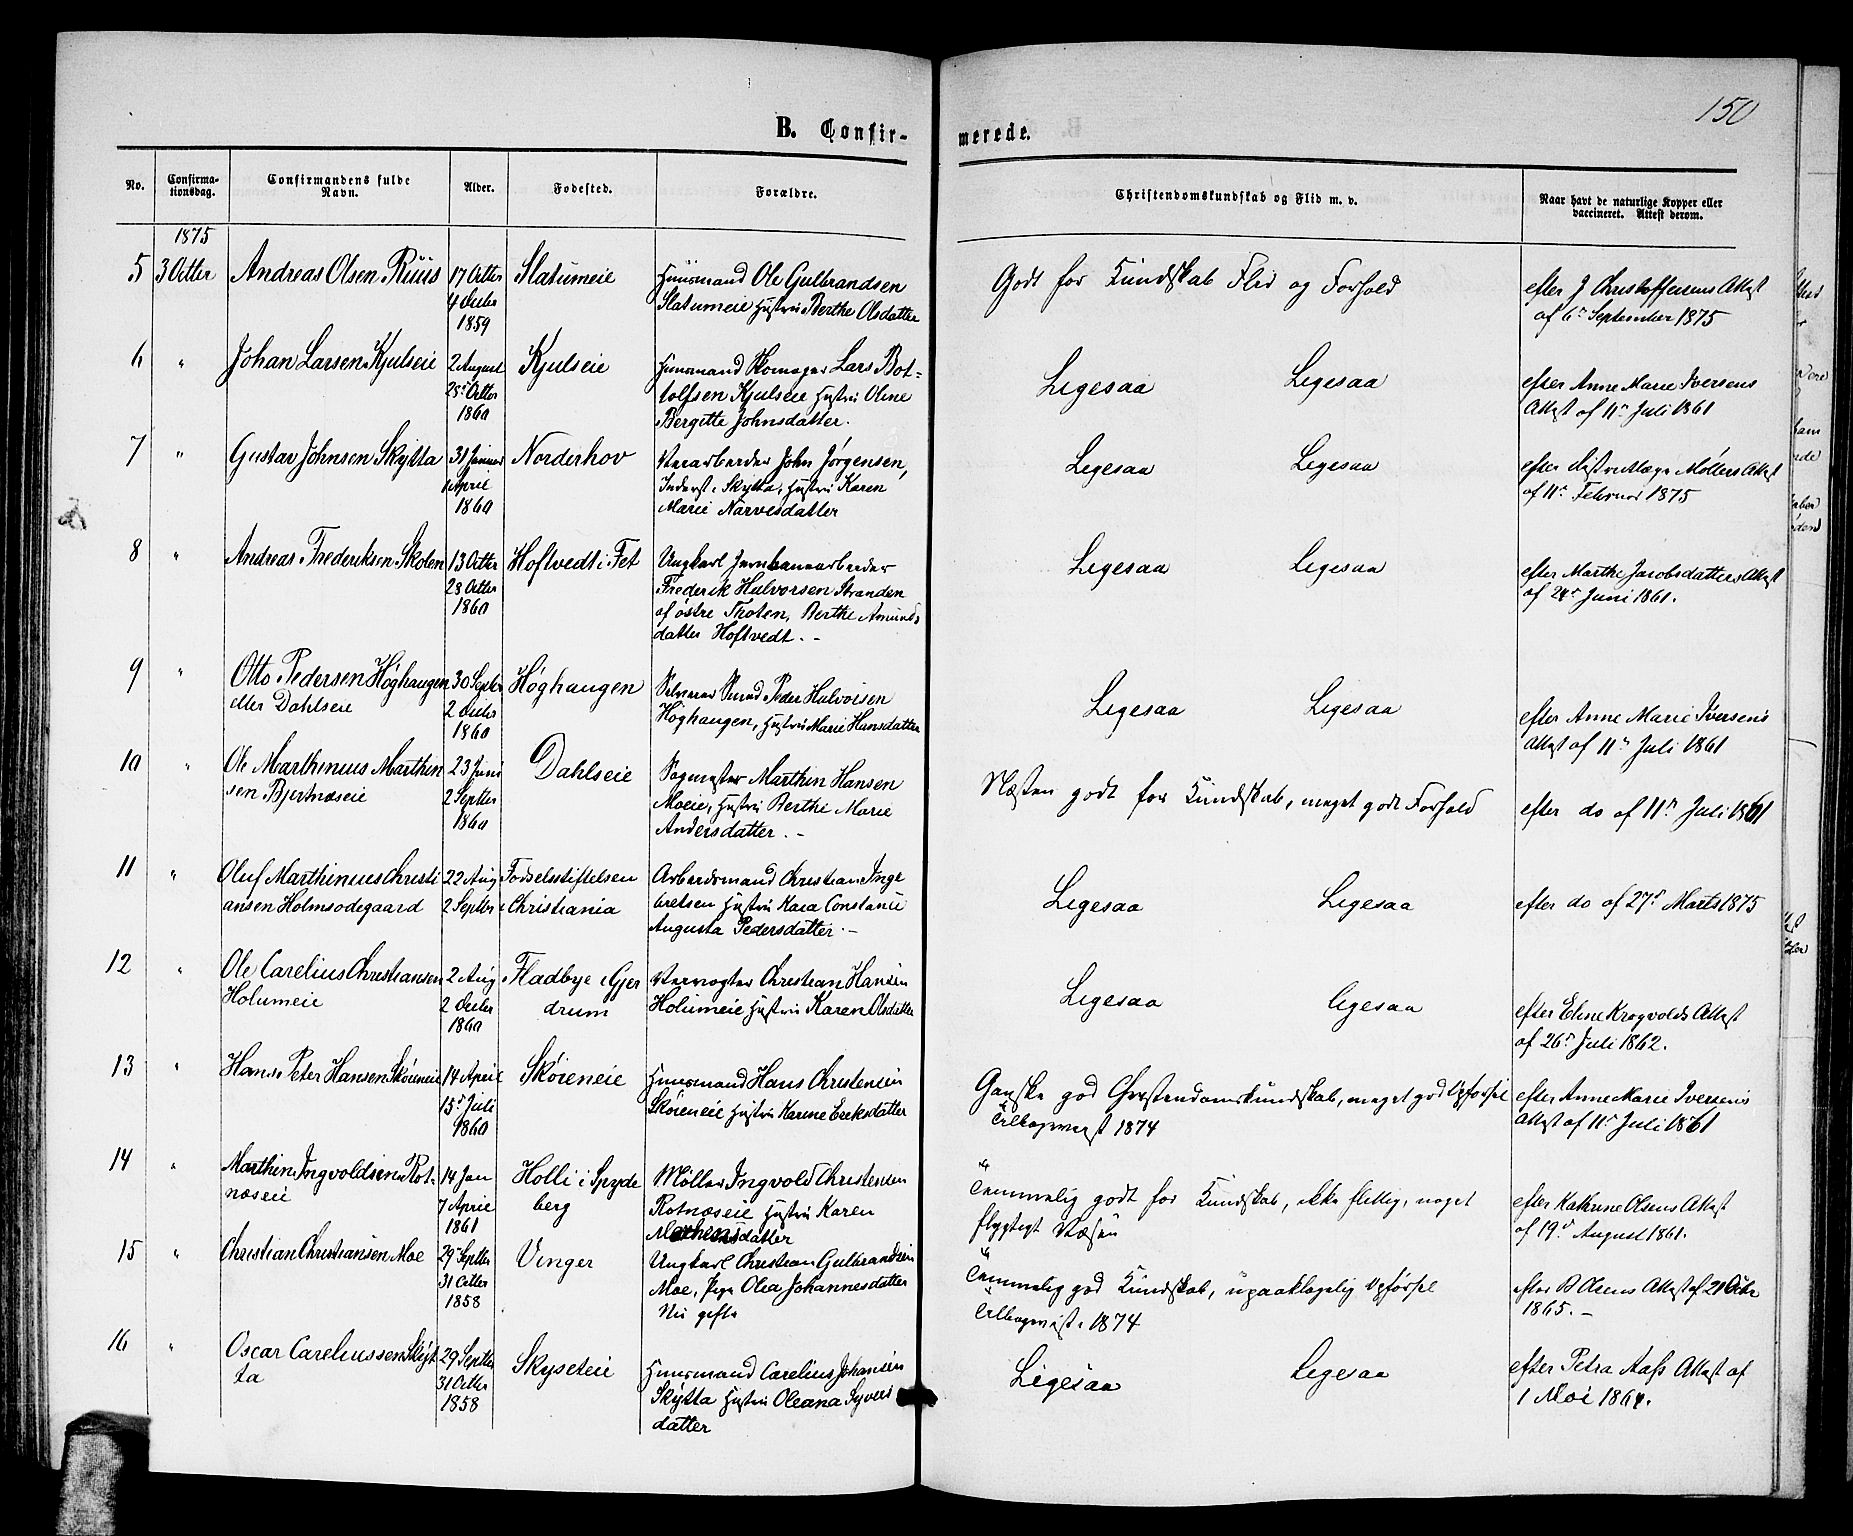 150
B. Confir-
merede.
No.
Confirma-
tionsdag.
Confirmandens fulde
Navn.
Alder.
Fødested.
Forældre.
Christendomskundskab og Flid m. v.
Naar havt de naturlige Kopper eller
vaccineret. Attest derom.
1875
5 3 Octbr Andreas Olsen Ruus 17 Octbr Slatumeie Huusmand Ole Gulbrandsen Godt for Kundskab Flid og Forhold efter J Christoffersens Attest
4 Decbr Slatumeie Hustru Berthe Olsdatter af 6te September 1875
1859
6 " Johan Larsen Kjulseie 2 August Kjulseie Huusmand Skomager Lars Bot= Ligesaa Ligesaa efter Anne Marie Iversens
28 Octbr tolfsen Kjulseie Hustru Oline Attest af 11te Juli 1861
1860 Bergitte Johnsdatter.
7 " Gustav Johnsen Skytta 31 Januar Norderhov John Jørgensen, Ligesaa Ligesaa efter Districtslæge Møllers Attest
1 April Inderst i Skytta, Hustru Karen af 11te Februar 1875
1860 Marie Narvesdatter
8 " Andreas Frederiksen Skolen 13 Octbr Hoftvedt i Fet Ungkarl Jernbanearbeider Ligesaa Ligesaa efter Marthe Jacobsdatters Attest
28 Octbr Frederik Halvorsen Stranden af 24de Juni 1861.
1860 af østre Thoten, Berthe Amunds
datter Hoftvedt. -
9 " Otto Pedersen Höghaugen 30 Septbr Höghaugen Peder Halvorsen Ligesaa Ligesaa efter Anne Marie Iversens
eller Dahlseie 2 Decbr Höghaugen, Hustru Marie Hansdatter Attest af 11te Juli 1861
1860
10 " Ole Marthinius Marthin 23 Juni Dahlseie Sagmester Marthin Hansen Næsten godt for Kundskab, meget godt Forhold efter do af 11te Juli 1861
sen Bjertnæseie 2 Septbr Moeie, Hustru Berthe Marie
1860 Andersdatter. -
11 " Oluf Marthinius Christi 22 Aug Fødselsstiftelsen Arbeidsmand Christian Inge Ligesaa Ligesaa efter do af 27de Marts 1875
ansen Holmsødegaard 2 Septbr i Christiania bretsen Hustru Kaia Constance
Augusta Pedersdatter. -
12 " Ole Carelius Christiansen 2 Aug Fladbye i Gjer Christian Hansen Ligesaa Ligesaa efter Eline Krogvolds Attest
Holumeie 2 Decbr drum Holumeie Hustru Karen Olsdatter af 26de Juli 1862.
1860
13 " Hans Peter Hansen Skøieneie 14 April Skøieneie Huusmand Hans Christensen Ganske god Christendomskundskab, meget god Opførsel efter Anne Marie Iversens
15de Juli Skøieneie Hustru Karine Eriksdatter Tilbagevist 1874 Attest af 11te Juli 1861
1860
14 " Marthin Ingvoldsen Rot- 14 Jan Holli i Spyde Møller Ingvold Christensen Temmelig godt for Kundskab, ikke flittig, noget efter Kathrine Olsens Attest
næseie 7 April berg Rotnæseie Hustru Karen flygtigt Væsen af 19de August 1861.
1861 Mathensdatter
15 " Christian Christiansen Moe 29 Septbr Vinger Ungkarl Christian Gulbrandsen Temmelig god Kundskab, upaaklagelig Opførsel efter B Olsens Attest af 21 Octbr
31 Octbr Moe, Pige Olea Johannesdatter Tilbagevist i 1874 1865. -
1858 Nu gifte
16 " Oscar Careliussen Skyt 29 Septbr Skyseteie Huusmand Carelius Johansen Ligesaa Ligesaa efter Petra Aass Attest af
ta 31 Octbr Skytta Hustru Oleana Syvers 1 Mai 1864.
1858 datter